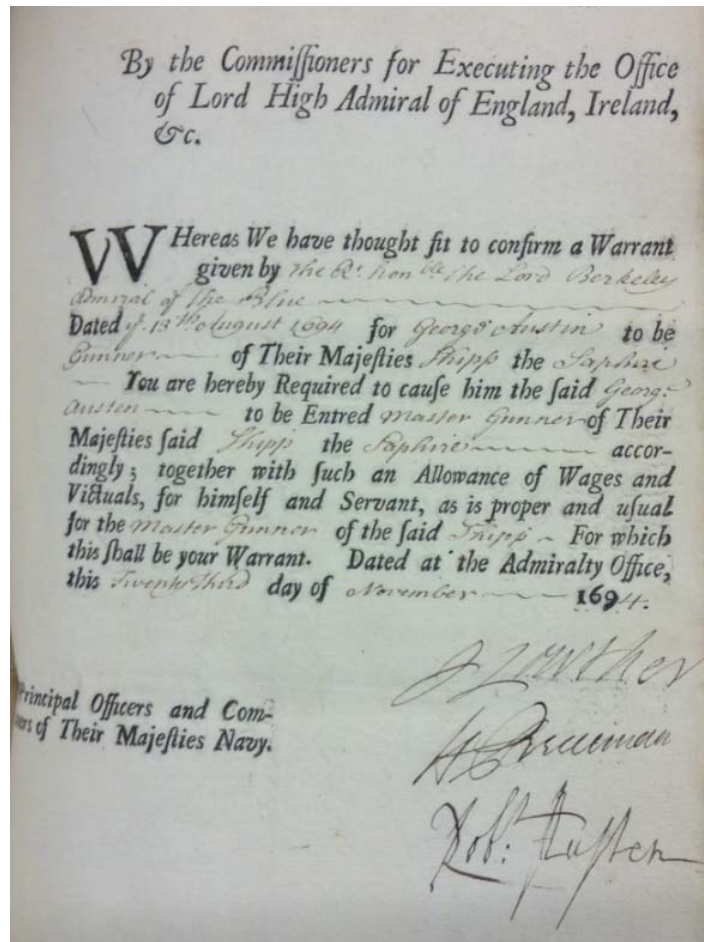 By the Commiſſioners for Executing the Office
of Lord High Admiral of England, Ireland,
&c.
WHereas We have thought fit to confirm a Warrant
given by The Rt. honble the Lord Berkeley
Admiral of the Blue
Dated ye. 13th August 1694 for George Austin to be
Gunner of Their Majeſties Shipp the Saphire
You are hereby Required to cauſe him the ſaid George
Austen to be Entred Master Gunner of Their
Majeſties ſaid Shipp the Saphire accor-
dingly; together with ſuch an Allowance of Wages and
Victuals, for himſelf and Servant, as is proper and uſual
for the Master Gunner of the ſaid Shipp For which
this ſhall be your Warrant. Dated at the Admiralty Office,
this Twenty Third day of November 1694.
J Lowther
H Priestman
Principal Officers and Com-
of Their Majeſties Navy.
Robt: Austen